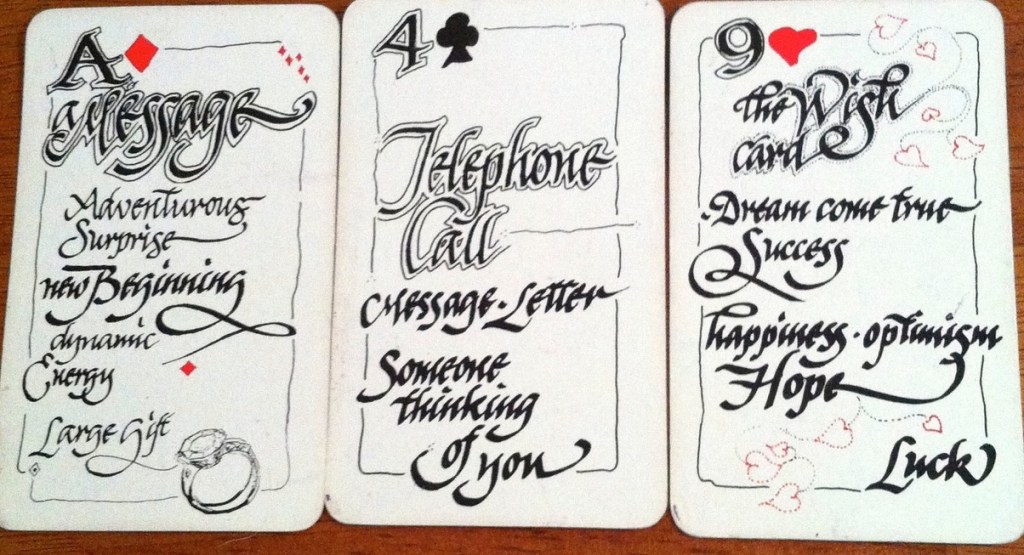 A
a Message
Adventurous
Surprise
new Beginning
dynamic
Energy
Large Gift
4
Telephone
Call
Message · Letter
Someone
thinking
of you
9
the Wish
card
· Dream come true
Success
happiness · optimism
Hope
Luck